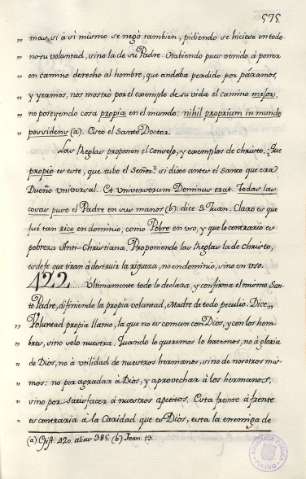 575
mas, si a si mismo se negò tambien, pidiendo se hiciese en todo
no su voluntad, sino la de su Padre. Habiendo pues venido á poner
en camino derecho al hombre, que andaba perdido por páramos,
y yermos, nos mostró por el exemplo de su vida el camino mejor,
no poseyendo cosa propia en el mundo: nihil proprium in mundo
possidens (a). Este el Santo Doctor.
Las Reglas proponen el consejo, y exemplos de Christo. Que
propio es este, que tubo el Señor? si dice antes el Santo que era
Dueño universal. Et universorum Dominus erat. Todas las
cosas puso el Padre en sus manos (b) dice S. Juan. Claro es que
fué tan rico en dominio, como Pobre en uso, y que lo contrario es
pobreza Anti-Christiana. Proponiendo las Reglas la de Christo,
422 Ultimamente todo lo declara, y confirma el mismo San-
to Padre, difiniendo la propia voluntad, Madre de todo peculio. Dice,
Voluntad propia llamo, la que no es comun con Dios, y con los hom-
bres, sino solo nuestra. Quando lo queremos lo hacemos, no á gloria
de Dios, no à utilidad de nuestros hermanos, sino de nosotros mis-
mos: no por agradar á Dios, y aprovechar à los hermanos,
sino por satisfacer à nuestros apetitos. Esta frente á frente
es contraria à la Caridad que es Dios, esta la enemiga de
(a) Epist. 420. alias 385 (b) Joan. 13.